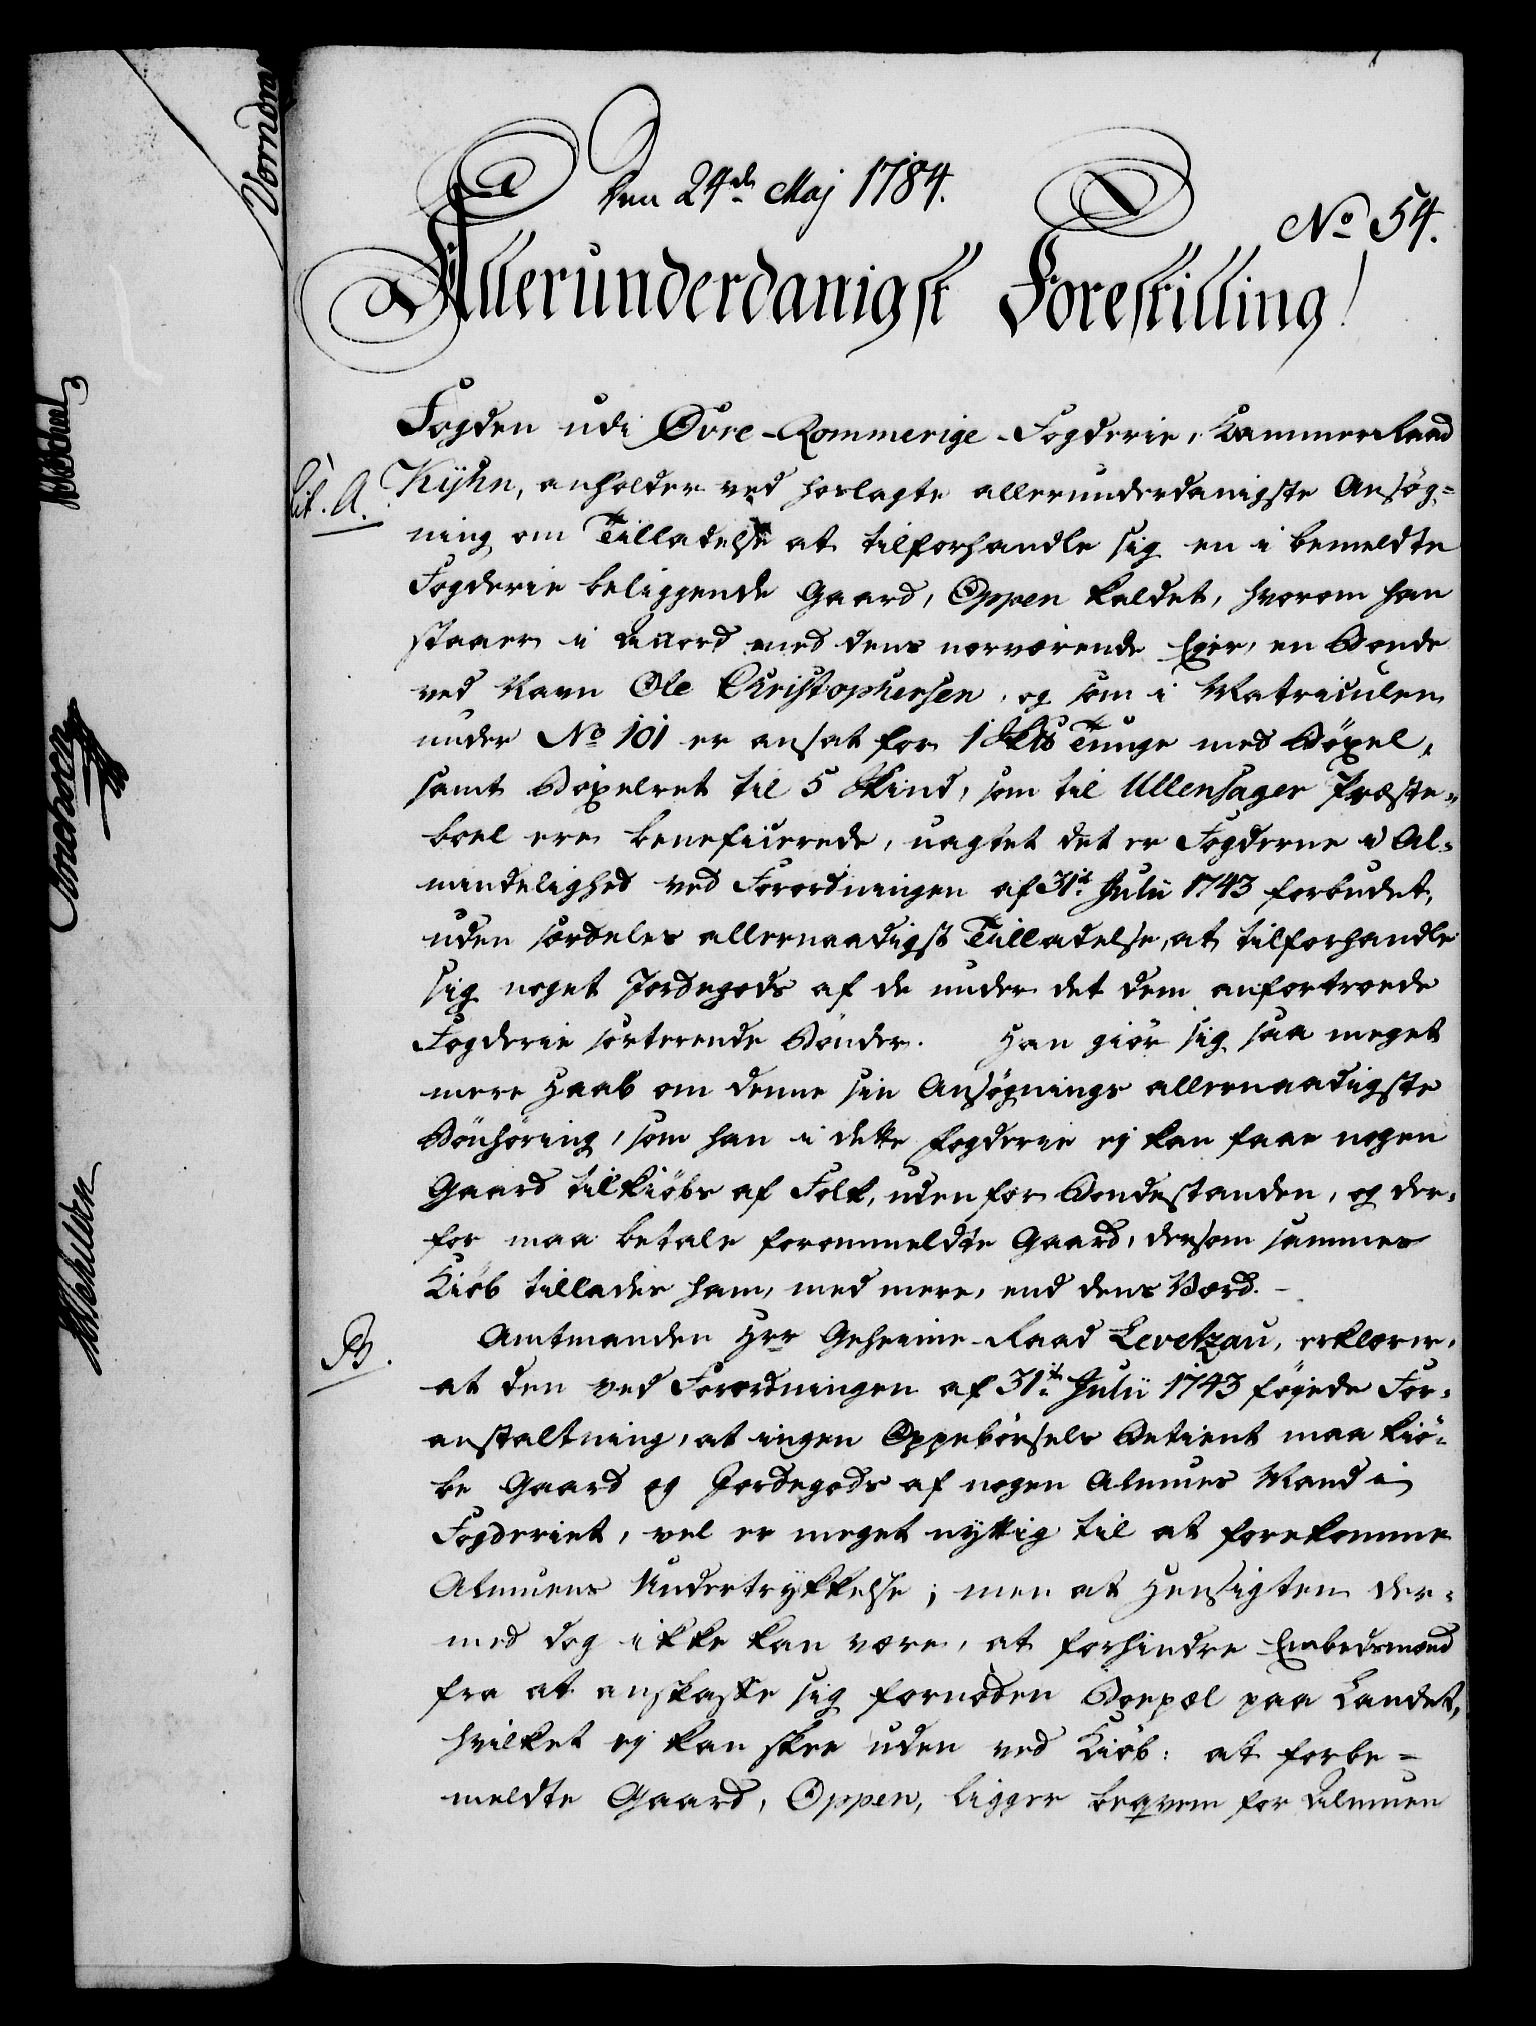 Den 24de Maj 1784.
No 54.
Allerunderdanigst Forestilling!
Fogden udi Øvre-Rommerige-Fogderie, Kammerraad
Lit. A. Kÿhn, anholder ved hoslagte allerunderdanigste Ansøg=
ning om Tilladelse at tilforhandle sig en i bemeldte
Fogderie beliggende Gaard, Oppen kaldet, hvorom han
staaer i Accord med dens nærværende Ejer, en Bonde
ved Navn Ole Christophersen, og som i Matriculen
under No 101 er ansat for 1 Tunge med Böxel,
samt Böxelret til 5 Skind, som til Ullensager Præste=
boel ere beneficerede, uagtet det er Fogderne i Al=
mindelighed ved Forordningen af 31te Julii 1743 forbudet,
uden særdeles allernaadigst Tilladelse, at tilforhandle
sig noget Jordegods af de under det dem anfortroede
Fogderie sorterende Bönder. Han giör sig saa meget
mere Haab om denne sin Ansøgnings allernaadigste
Bönhöring, som han i dette Fogderie ej kan faae nogen
Gaard tilkiöbs af Folk, uden for Bondestanden, og der=
for maa betale forommeldte Gaard, dersom sammes
Kiöb tillades ham, med mere, end dens Værd. -
B. Amtmanden Hrr Geheime-Raad Levetzau, erklærer,
at den ved Forordningen af 31te Julii 1743 föjede For=
anstaltning, at ingen Oppebörsels Betient maa kiö=
be Gaard og Jordegods af nogen Almues Mand i
Fogderiet, vel er meget nyttig til at forekomme
Almuens Undertrykkelse; men at Hensigten der=
med dog ikke kan være, at forhindre Embedsmænd
fra at anskaffe sig fornöden Boepæl paa Landet,
hvilket ej kan skee uden ved Kiöb: at forbe=
meldte Gaard, Oppen, ligger beqvem for Almuen